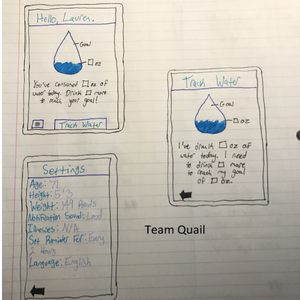 Hello, Lauren.
Goal
oz
You've consumed oz of
water today. Drink more
to reach your goal!
Track Water
Track Water
Goal
oz
I've drank oz of
water today. I need
to drink more
to reach my goal
of oz.
Settings
Age: 71
Height: 5'3
Weight: 149
Notification Sound: Loud
Illnesses: N/A
Set Reminder For: Every
2 hours
Language: English
Team Quail